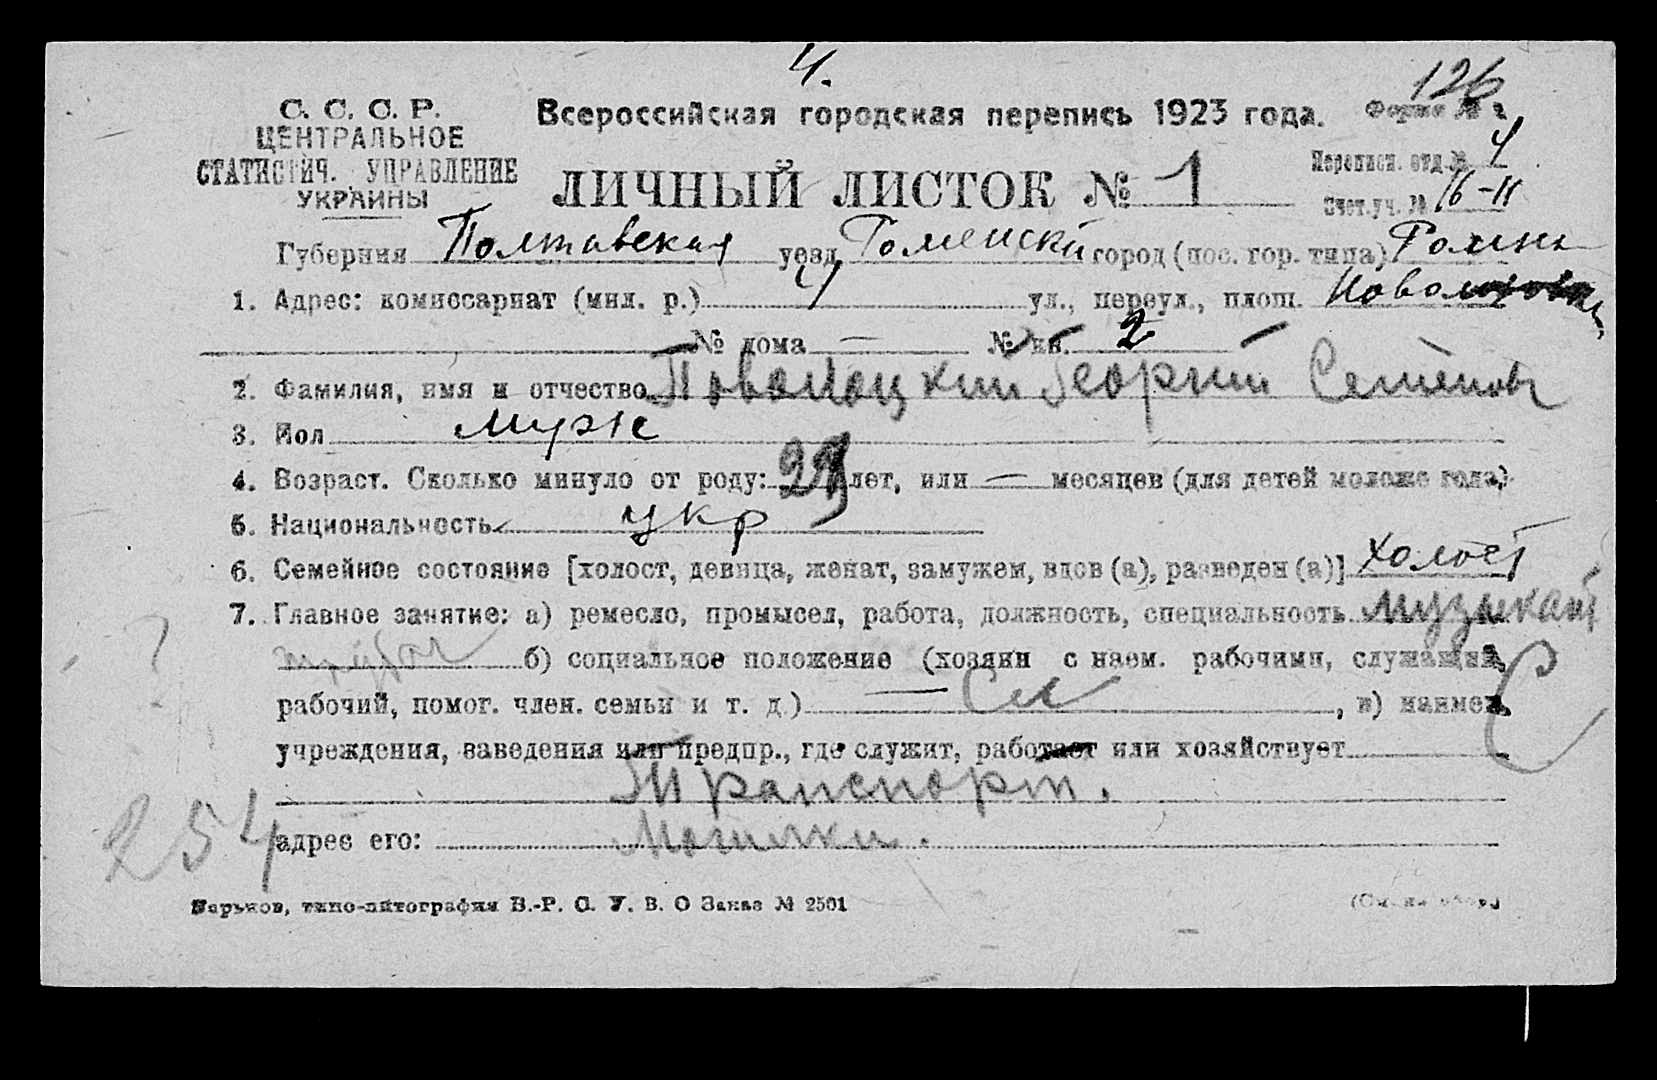 4.
126
С. С. С. Р. Всероссийская городская перепись 1923 года. Форма № 2
ЦЕНТРАЛЬНОЕ
СТАТИСТИЧ. УПРАВЛЕНИЕ
УКРАИНЫ
ЛИЧНЫЙ ЛИСТОК № 1
Переписн. отд. № 4
Счет. уч. № 16-11
Губерния Полтавская уезд Роменски город (пос. гор. типа) Ромны
1. Адрес: комиссариат (мил. р.) 4 ул., переул., площ.
№ дома — № кв. 2
2. Фамилия, имя и отчество Георгий Семенов
3. Пол мужс
4. Возраст. Сколько минуло от роду: лет, или — месяцев (для детей моложе года)
5. Национальность укр
6. Семейное состояние [холост, девица, женат, замужем, вдов (а), разведен (а)] холост
7. Главное занятие: а) ремесло, промысел, работа, должность, специальность музыкант
б) социальное положение (хозяин с наем. рабочими, служащий,
рабочий, помог. член. семьи и т. д.) — Сл , в) наимен. С
учреждения, заведения или предпр., где служит, работает или хозяйствует
Транспорт.
254 адрес его:
Харьков, типо-литография В.-Р. С. У. В. О Заказ № 2501